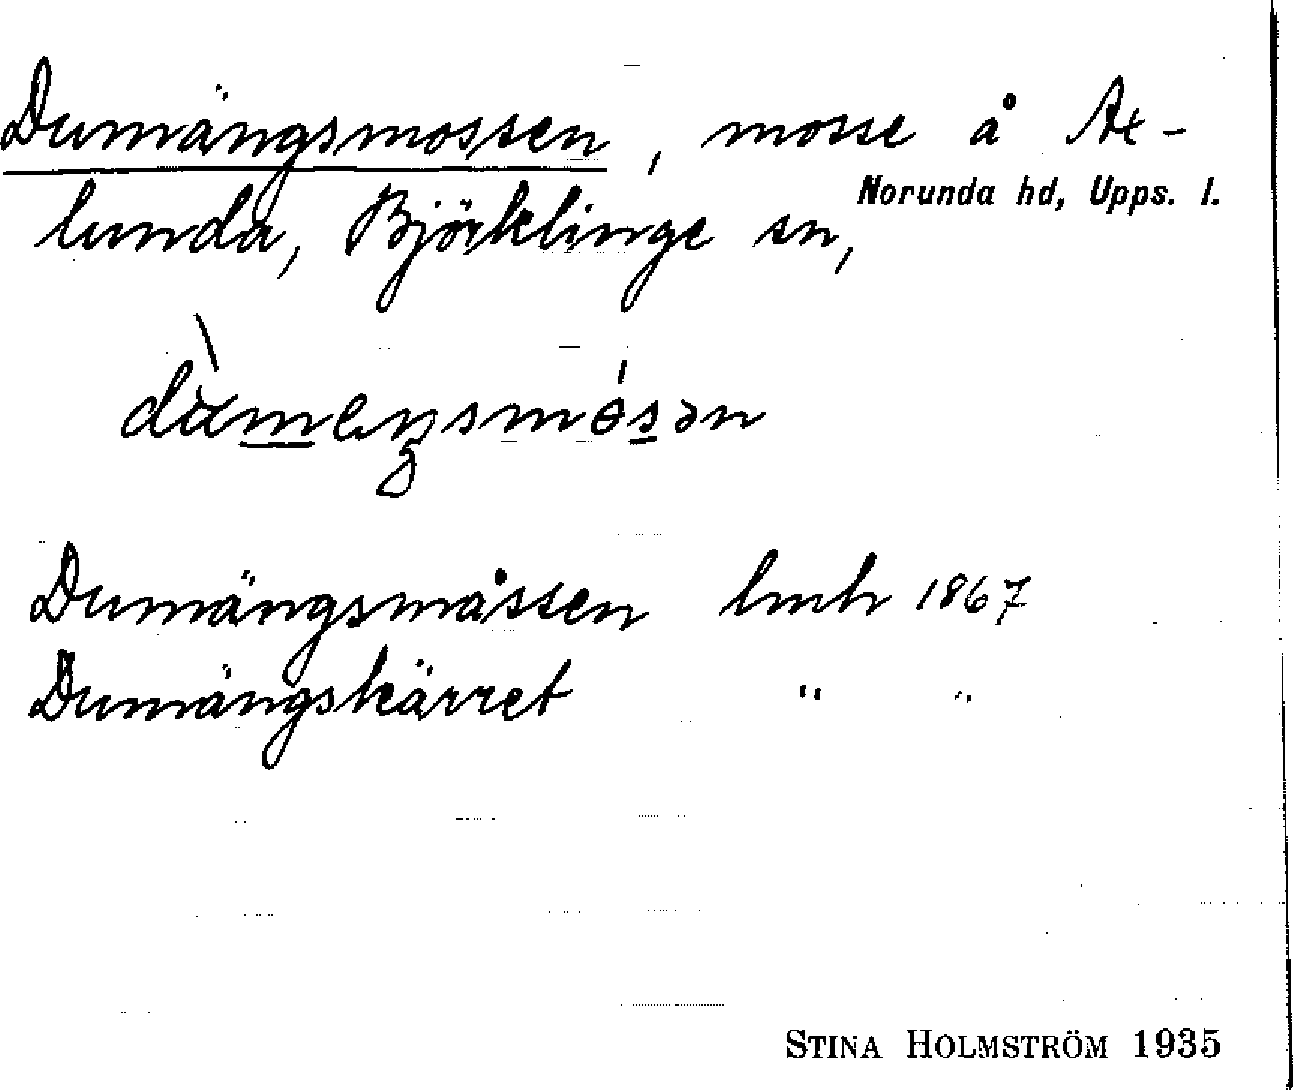 Dumängsmossen, mosse å Ax-
Norunda hd, Upps. l.
lunda, Björklinge sn,
Dumängsmåssen lmh 1867
Dumängskärret " "
STINA HOLMSTRÖM 1935